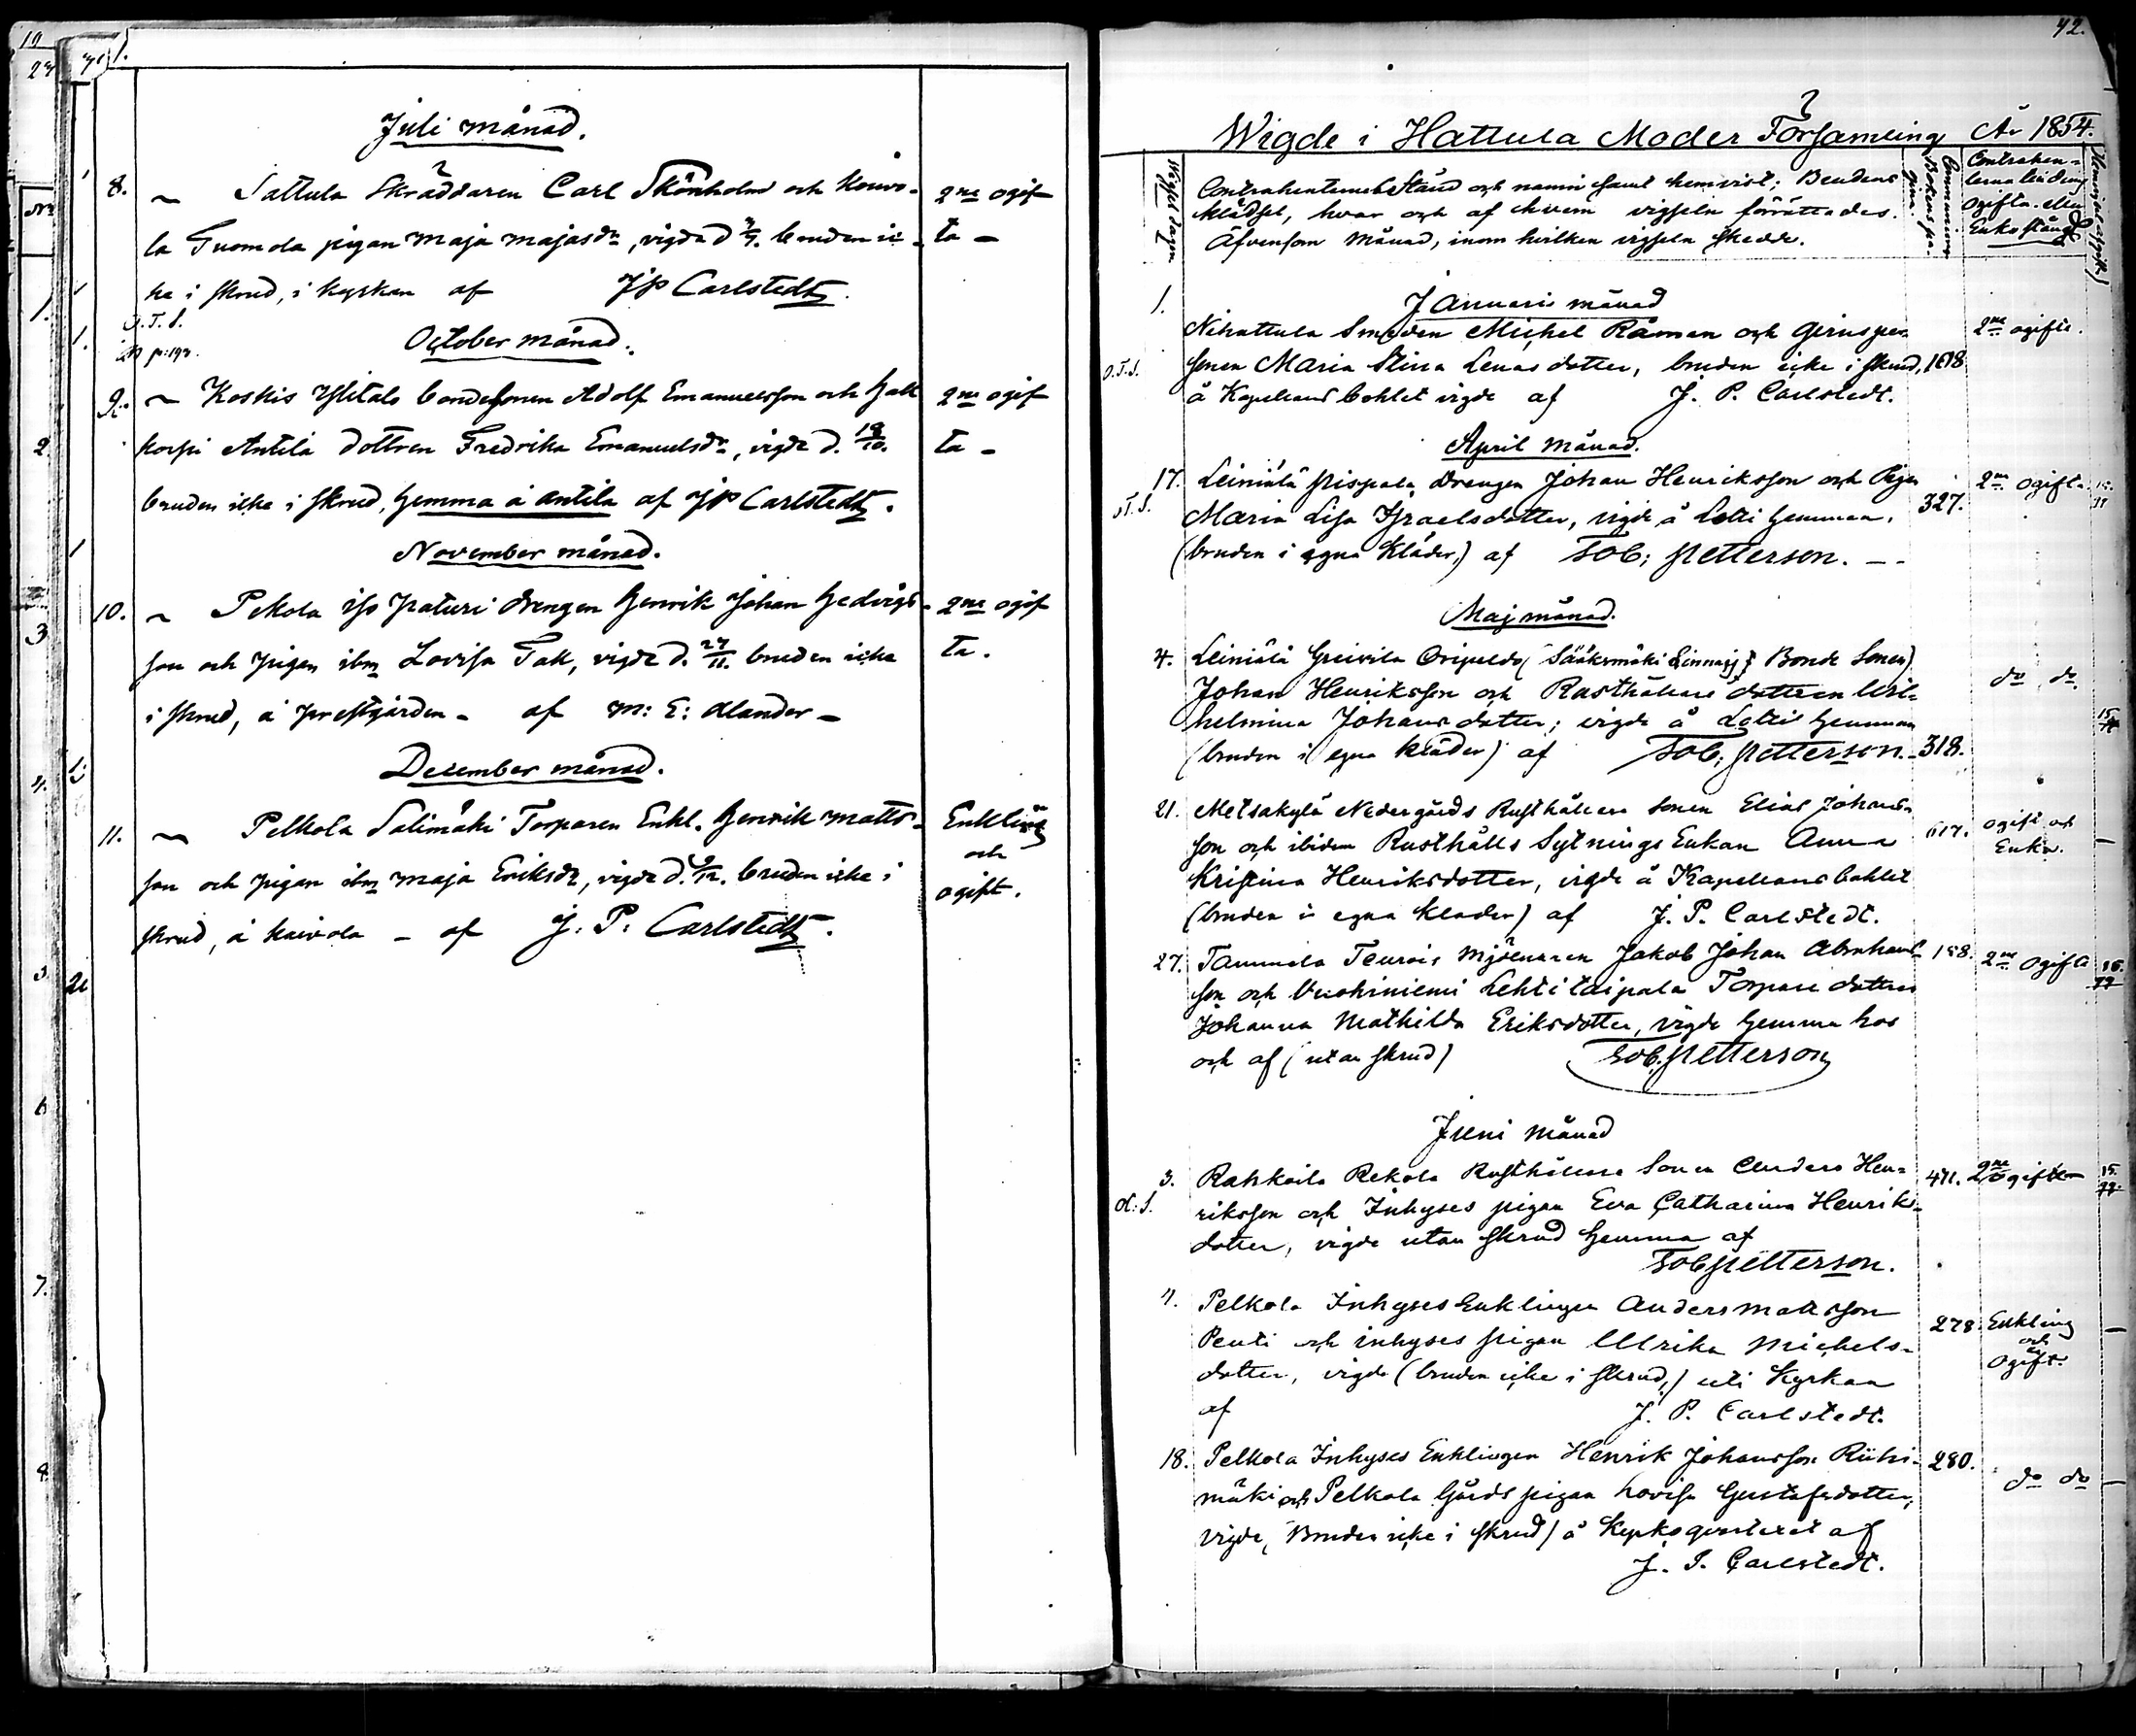 71.
Juli månad.
8. Sattula Skräddaren Carl Skönholm och Kouvo-
la Tuomola pigan Maja Majasdr, vigda d 2/7. bruden ic-
ke i skrud, i kyrkan af JP Carlstedt.
2ne ogif
ta -
October månad.
9. Koskis Ylitalo bondesonen Adolf Emanuelsson och Hatt
korpi Antila dottren Fredrika Emanuelsdr, vigde d. 18/10.
bruden icke i skrud, hemma å Antila af JP Carlstedt.
2ne ogif
ta -
November månad.
10. Pekola iso Paturi drengen Henrik Johan Hedvigs-
son och pigan ibm Lovisa Tak, vigde d. 27/11. bruden icke
i skrud, å prestgården - af M: E: Alander -
2ne ogif
ta.
December månad.
11. Pelkola Salimäki Torparen Enkl. Henrik Matts-
son och pigan ibm Maja Eriksdr, vigde d. /12. bruden icke i
skrud, å Kaivola - af J. P. Carlstedt.
Enkling
och
ogift.
72.
Wigde i Hattula Moder Församling År 1854.
Vigsel dagen
Contrahenternes Stånd och namn samt hemvist; Brudens
klädsel, hvar och af hvem vigseln förrättades.
Äfvensom Månad, inom hvilken vigseln skedde.
Communion
Bokens pa-
gina.
Contrahen-
terna
Ogifta eller
Enkostånd
Januarii månad
1. Nihattula Smeden Michel Råman och Gerusper
sonen Maria Stina Lenasdotter, bruden icke i skrud, 1618
å Kapellans bohlet vigde af J. P. Carlstedt.
2ne ogifte.
April Månad.
17. Leiniälä Pispala Drengen Johan Henriksson och Pigan
Maria Lisa Israelsdotter, vigde å Lotti hemman, 327.
(bruden i egna kläder,) af Tob; Petterson. - -
2ne ogifta
Maj månad.
4. Leiniälä Greivilä Oripeldo (Sääksmäki Linnais) Bonde Sonen
Johan Henriksson och Rusthållare dottren Wil-
helmina Johansdotter; vigde å Lotti hemman
(bruden i egna kläder) af Tob; Petterson. 318.
do do
21. Metsäkylä Nedergårds Rusthållare Sonen Elias Johans-
son och ibidem Rusthålls Sytnings Enkan Anna 617.
Kristina Henriksdotter, vigde å Kapellans bohlet
(bruden i egna kläder) af J. P. Carlstedt.
ogift och
Enka.
27. Tammela Teurois Mjölnaren Jakob Johan Abrahams- 158.
son och Vuohiniemi Lehtitaipala Torpare dottren
Johanna Mathilda Eriksdotter, vigde hemma hos
och af (utan skrud) Tob. Petterson
2ne Ogifta
Juni Månad
3. Rahkoila Rekola Rusthållare Sonen Anders Hen- 471.
riksson och Inhyses pigan Eva Catharina Henriks-
dotter, vigde utan Skrud hemma af
Tob Petterson.
2ne ogifte
4. Pelkola Inhyses Enklingen Anders Mattsson
Penti och inhyses pigan Ulrika Michels- 278.
dotter, vigde (bruden icke i skrud,) uti Kyrkan
af J. P. Carlstedt.
Enkling
och
Ogift.
18. Pelkola Inhyses Enklingen Henrik Johansson Riihi- 280.
mäki och Pelkola Gårds pigan Lovisa Gustafsdotter,
vigde, (Bruden icke i skrud) å Kyrkoqvarteret af
J. P. Carlstedt.
do do